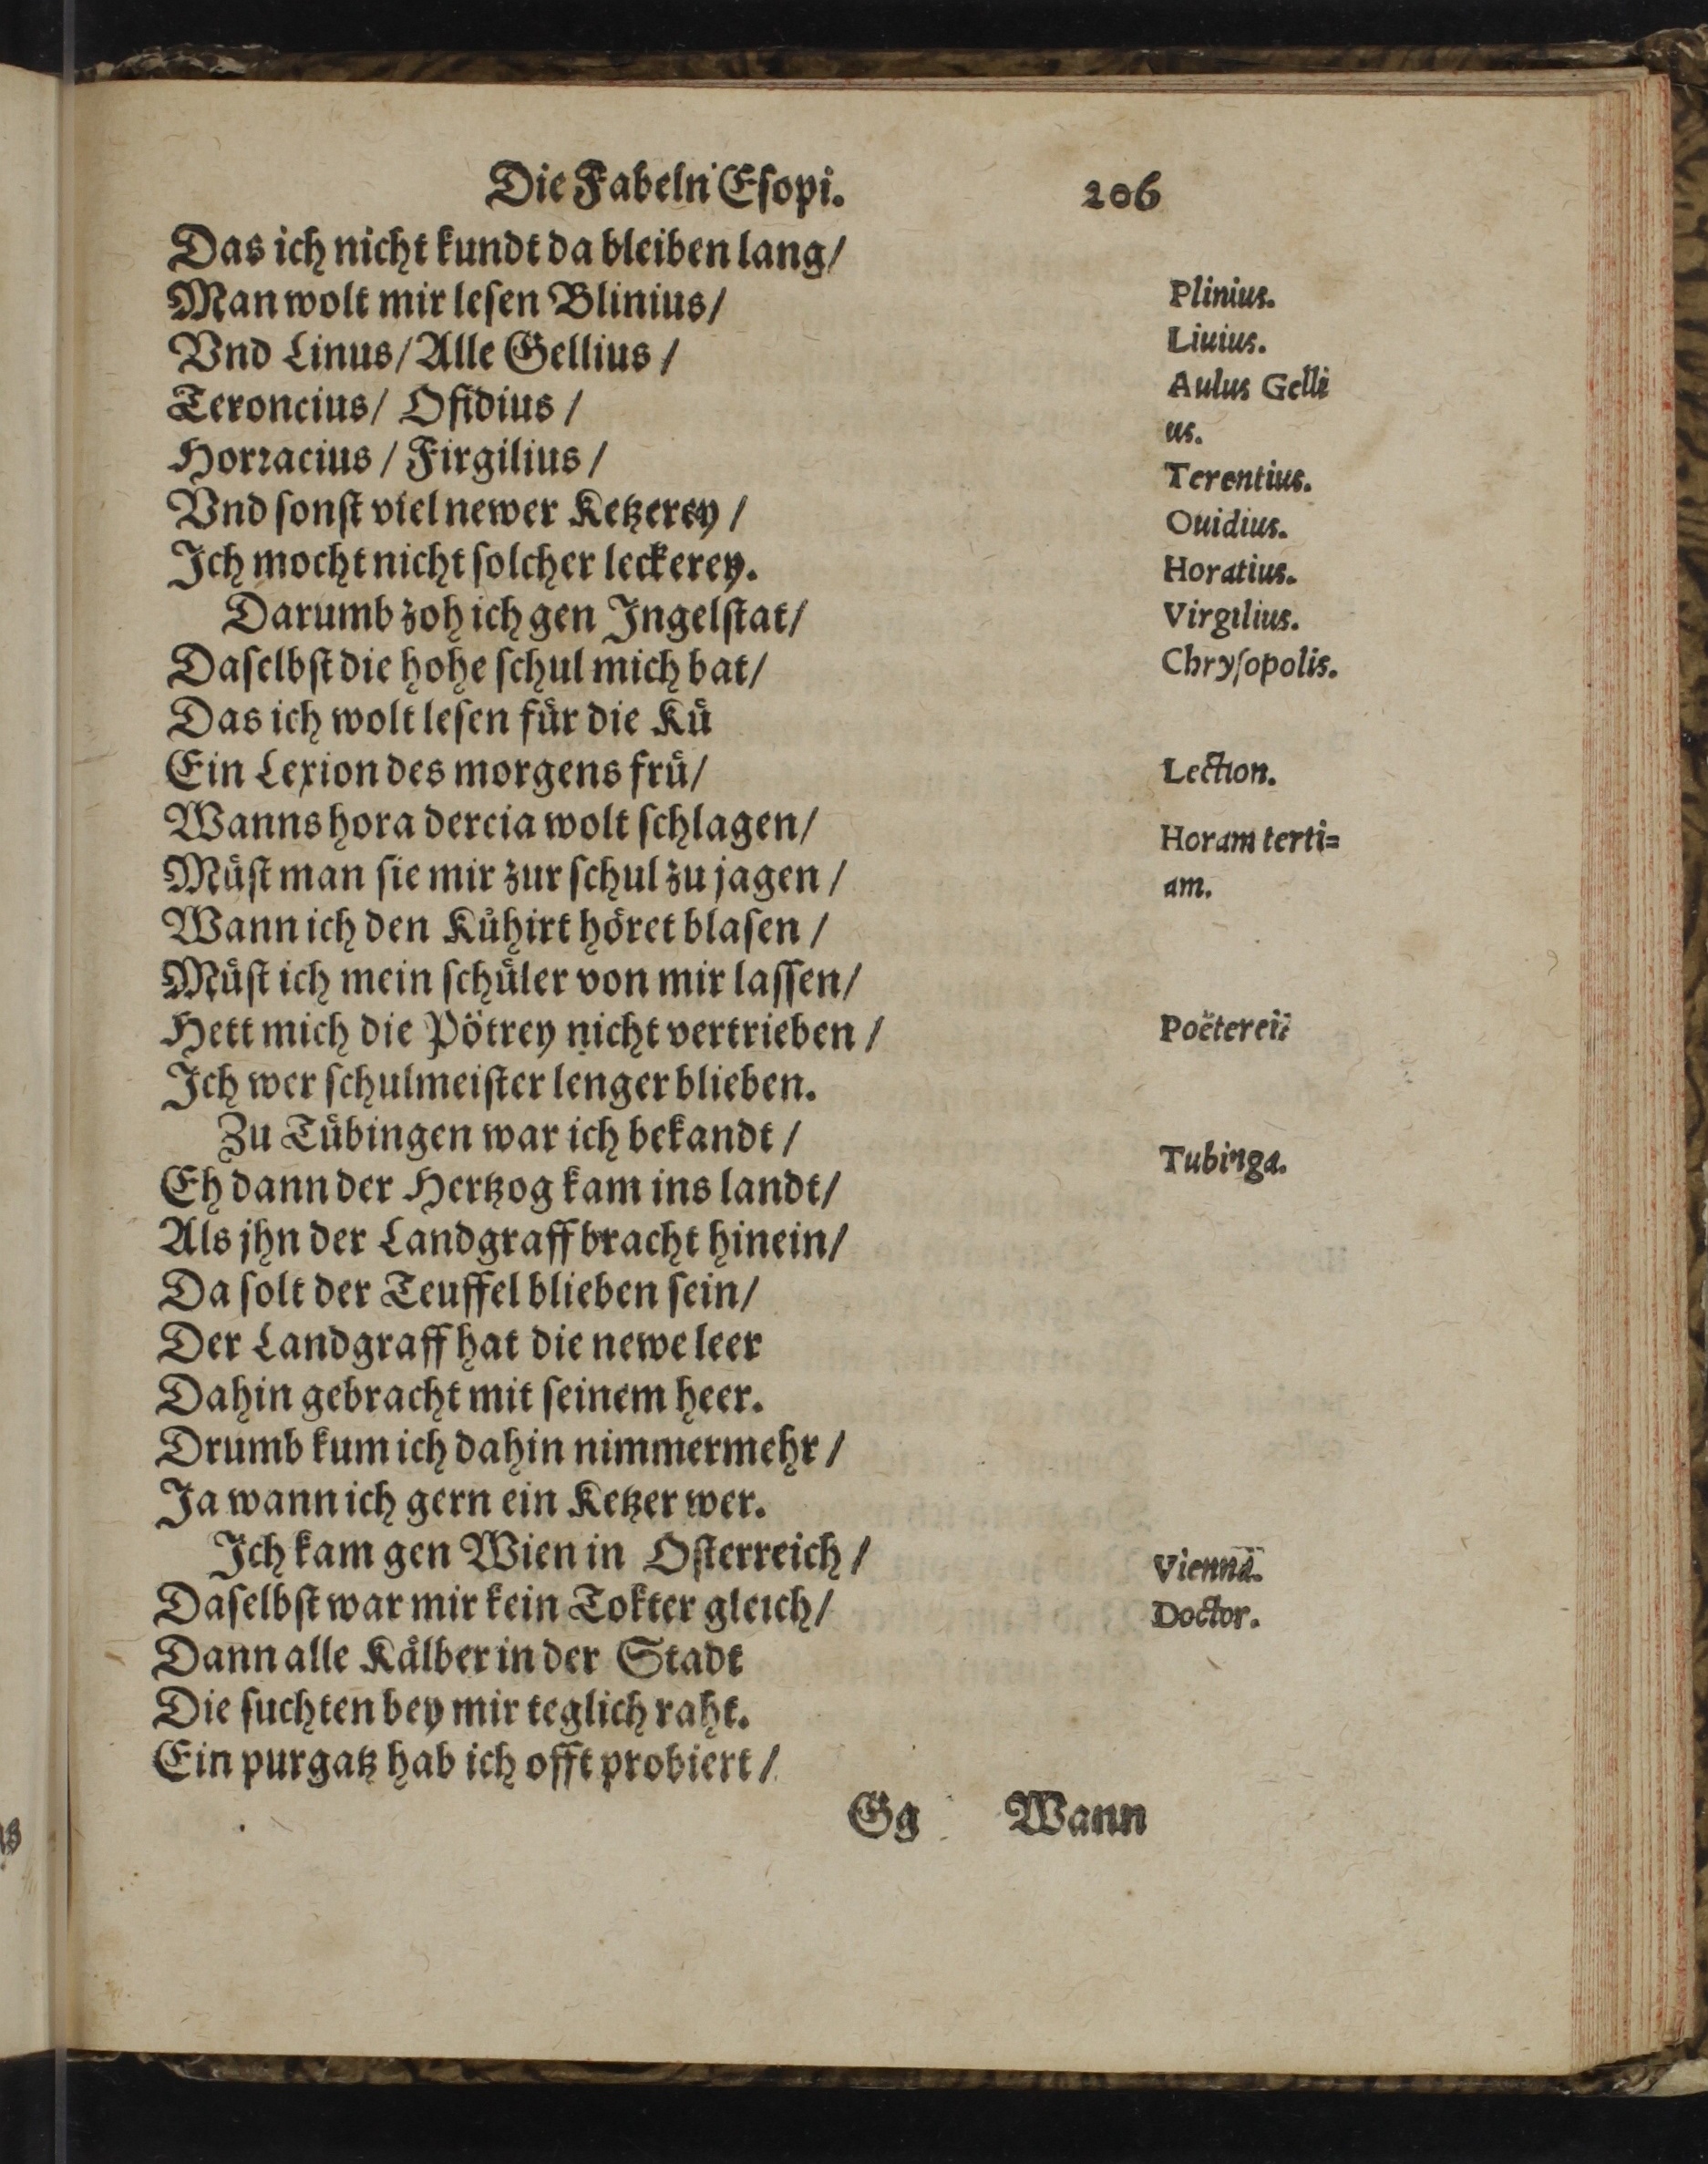 Die Fabeln Eſopi. 206
Das ich nicht kundt da bleiben lang/
Man wolt mir leſen Blinius/
Vnd Linus/ Alle Gellius /
Teroncius/ Ofidius /
Horꝛacius / Firgilius /
Vnd ſonſt viel newer Ketzerey /
Ich mocht nicht ſolcher leckerey.
Darumb zoh ich gen Ingelſtat/
Daſelbſt die hohe ſchul mich bat/
Das ich wolt leſen fuͤr die Kuͤ
Ein Lexion des morgens fruͤ/
Wanns hora dercia wolt ſchlagen/
Muͤſt man ſie mir zur ſchul zu jagen /
Wann ich den Kuͤhirt hoͤret blaſen /
Muͤſt ich mein ſchuͤler von mir laſſen/
Hett mich die Poͤtrey nicht vertrieben /
Ich wer ſchulmeiſter lenger blieben.
Zu Tuͤbingen war ich bekandt /
Eh dann der Hertzog kam ins landt/
Als jhn der Landgraff bracht hinein/
Da ſolt der Teuffel blieben ſein/
Der Landgraff hat die newe leer
Dahin gebracht mit ſeinem heer.
Drumb kum ich dahin nimmermehr /
Ja wann ich gern ein Ketzer wer.
Ich kam gen Wien in Oſterreich /
Daſelbſt war mir kein Tokter gleich/
Dann alle Kaͤlber in der Stadt
Die ſuchten bey mir teglich raht.
Ein purgatz hab ich offt probiert /
Gg Wann
Plinius.
Liuius.
Aulus Gelli
us.
Terentius.
Ouidius.
Horatius.
Virgilius.
Chryſopolis.
Lection.
Horam terti=
am.
Poëterei
Tubinga.
Vienna.
Doctor.